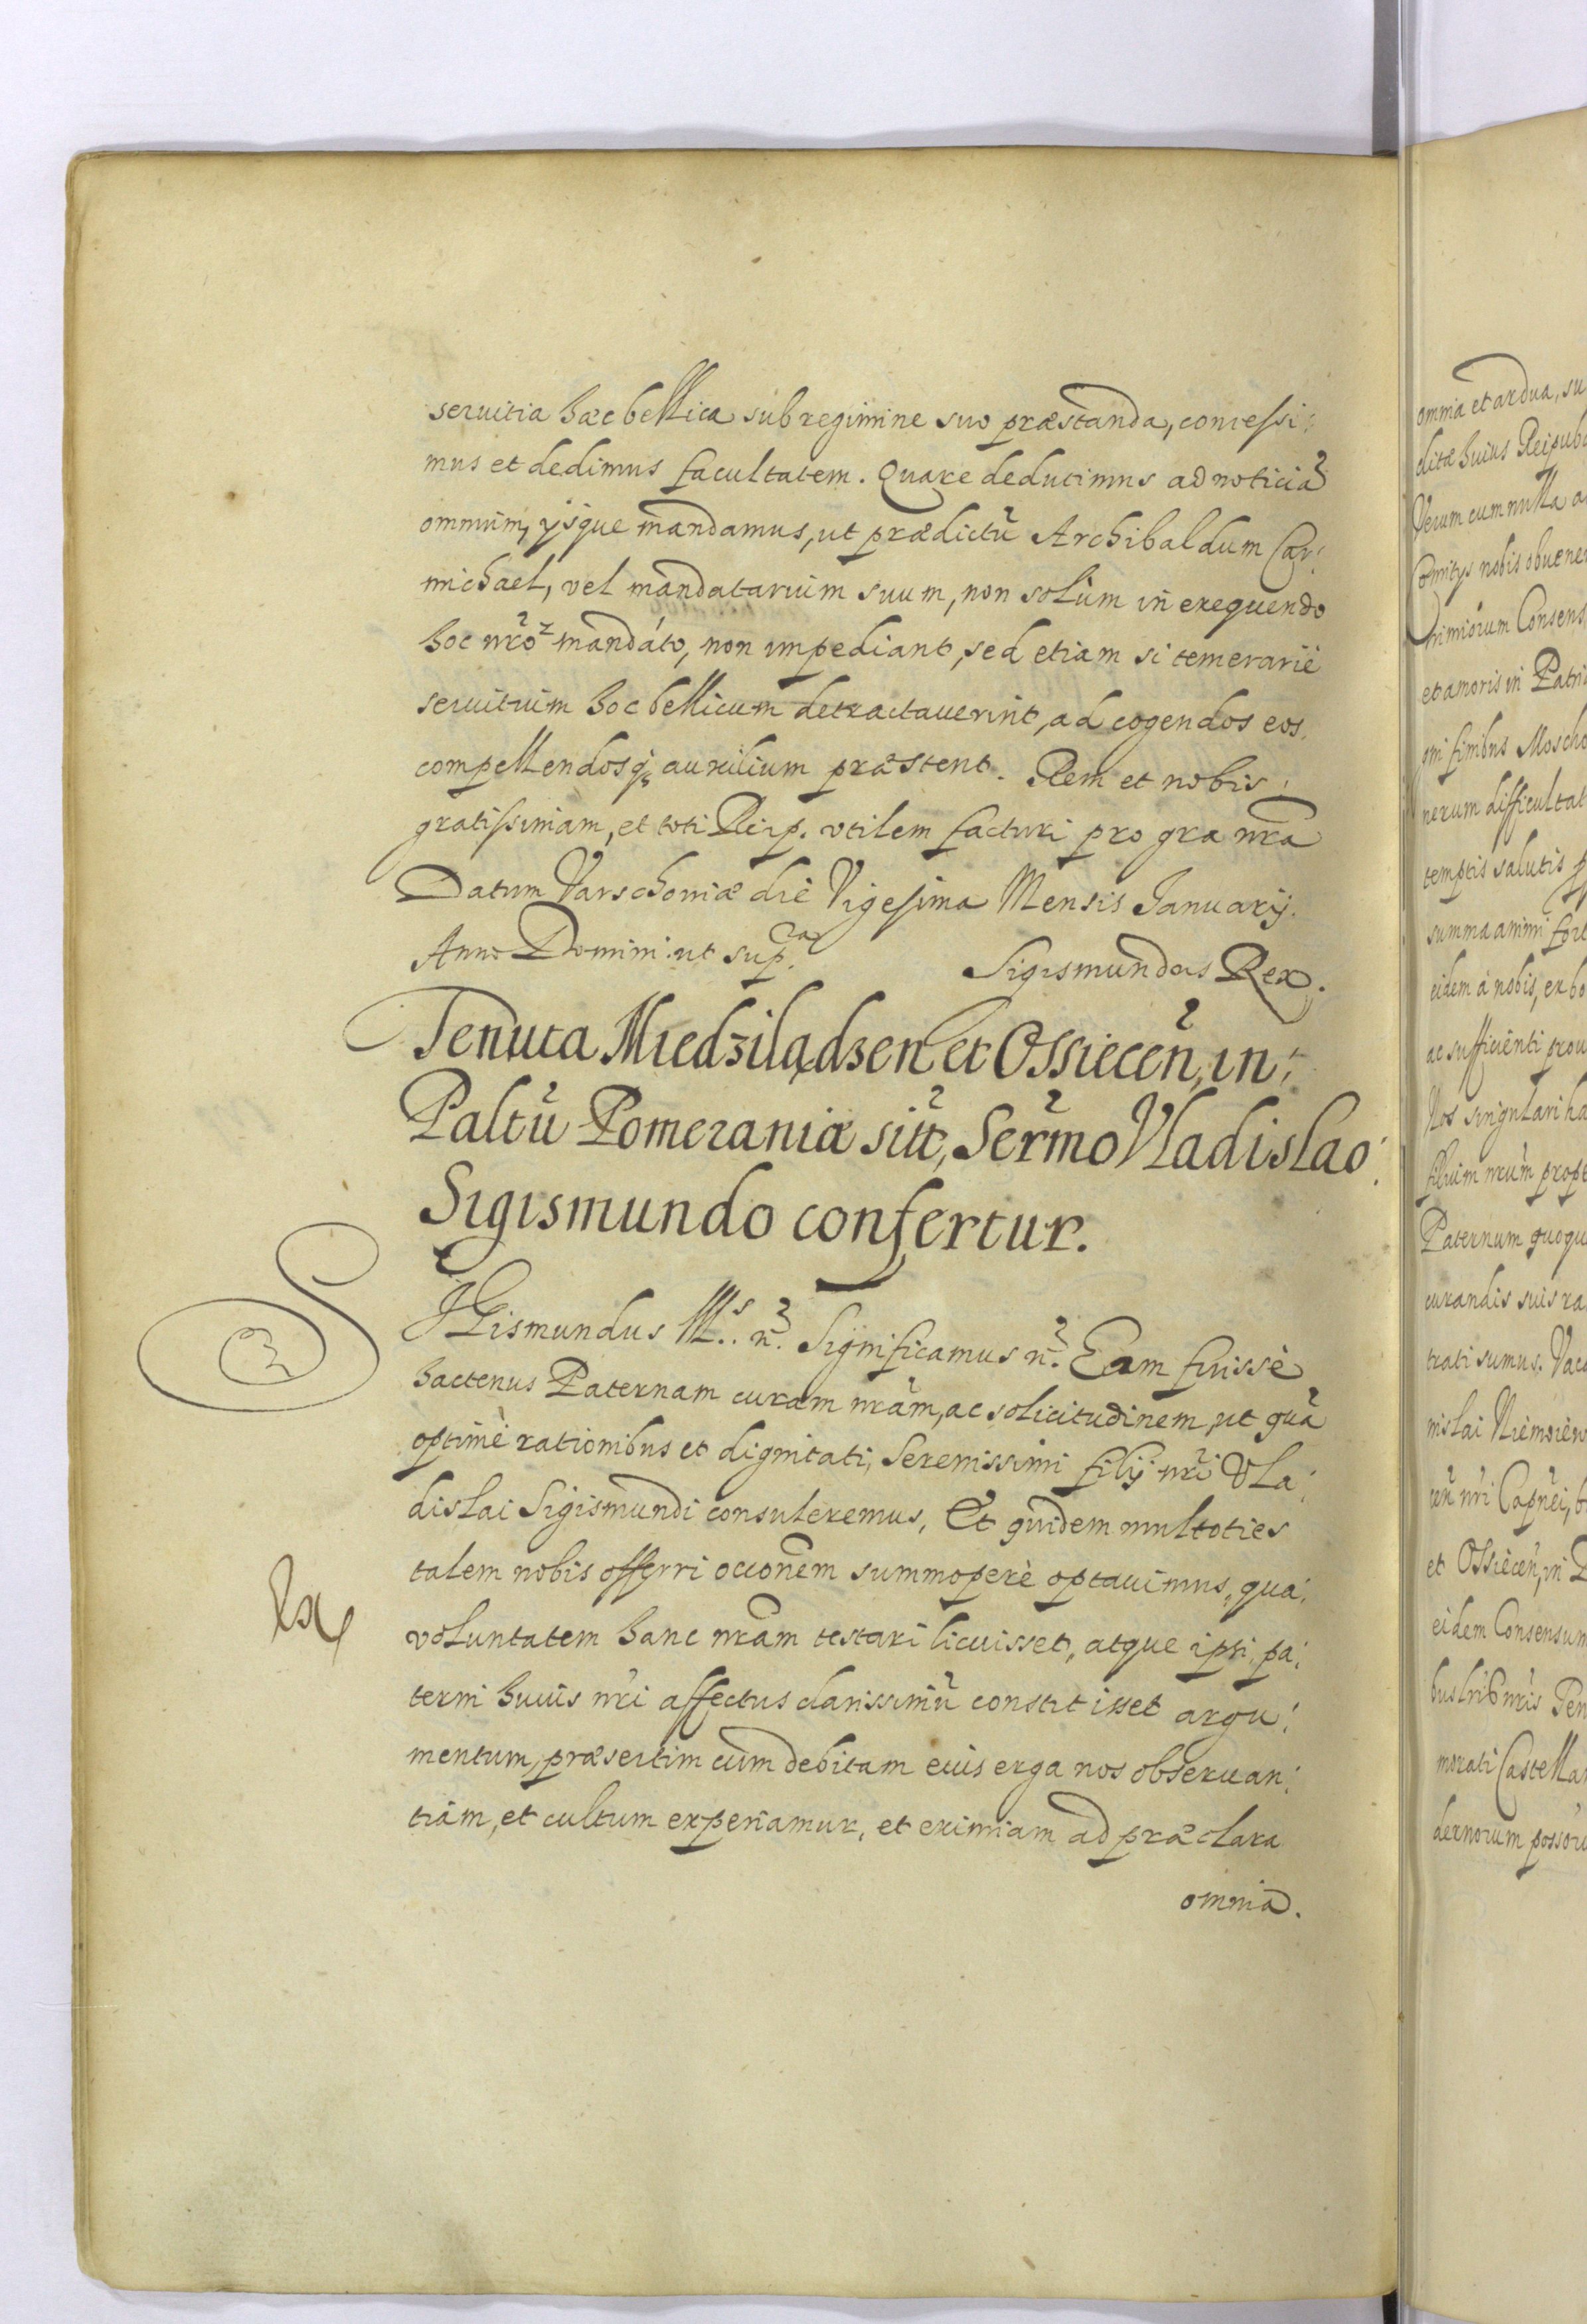 seruitia hæc bellica sub regimine suo præstanda, concessi:
mus et dedimus facultatem. Quare deducimus ad noticiã
omnium, ijsque mandamus, ut prædictũ Archibaldum Car:
michael, vel mandatarium suum, non solùm in exequendo
hoc nr̃o mandáto, non impediant, sed etiam si temerariè
seruitium hoc bellicum detractauerint, ad cogendos eos,
compellendosq; auxilium præstent. Rem et nobis
gratissimam, et toti Reip. vtilem facturi pro gra nra
Datum Varschouiæ die Vigesima Mensis Januarij.
Anno Domini ut supra.
Sigismundus Rex.
Tenuta Miedziłądzen et Ossiecen̄, in
Paltũ Pomeraniæ sitt̃, Serm̃o Vladislao
Sigismundo confertur.
SIGismundus III.s n̄. Significamus n̄. Eam fuisse
hactenus Paternam curam nrãm, ac solicitudinem, ut quã
optimè rationibus et dignitati, Serenissimi filij nr̃i Vla:
dislai Sigismundi consuleremus, Et quidem multoties
talem nobis offerri occõnem summoperè optauimus, qua
voluntatem hanc nrãm testari licuisset, atque ipsi pa:
terni huius nr̃i affectus clarissimũ constitisset argu:
mentum, præsertim cùm debitam eius erga nos obseruan:
tiam, et cultum experiamur, et eximiam ad præclara
omnia.
omnia et ardua, su
ditæ huius Reipub
Verum cum nulla a
Comitijs nobis obuene
et amoris in Patri
finibus Moscho
rerum difficultat
temptis salutis
summa animi fort
eidem à nobis, ex bo
ac sufficienti prou
Nos singulari ha
filium nrũm propt
Paternum quoqu
curandis suis ra
trati sumus. Vac
nislai Niemoien
nr̃i Capnei, b
et Ossiecen̄, in P
eidem Consensum
nr̃is Ten
morati Castellan
dernorum possor